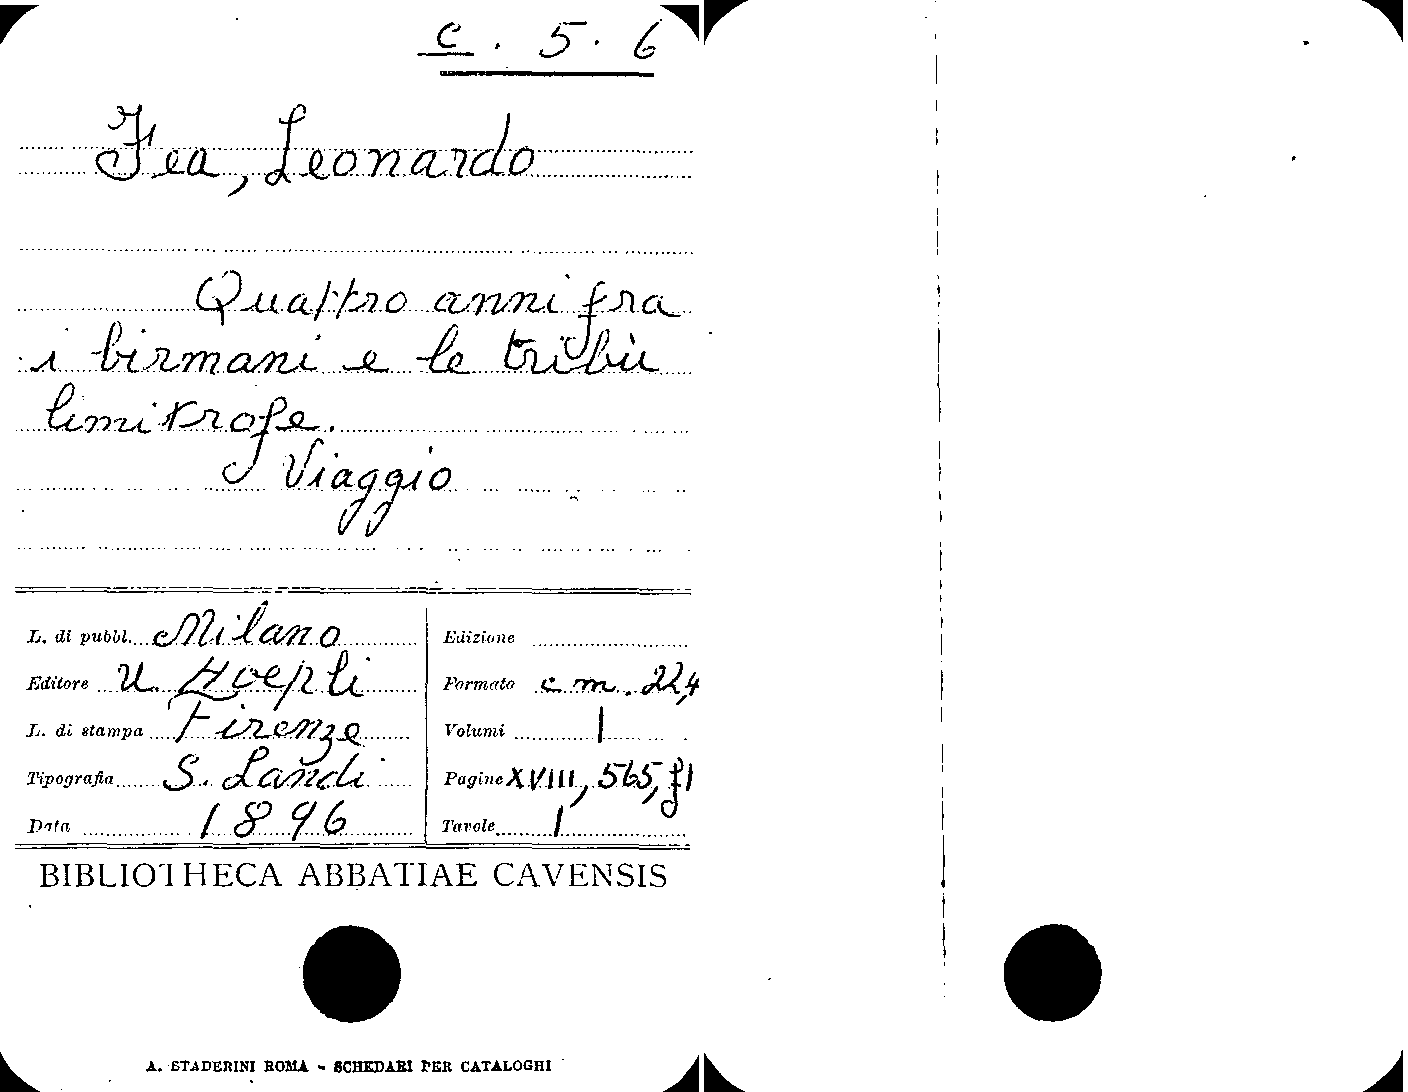 C. 5. 6
Fea, Leonardo
Quattro anni fra
i birmani e le tribù
limitrofe.
Viaggio
L. di pubbl. Milano
Editore U. Hoepli
L. di stampa Firenze
Tipografia S. Landi
Data 1896
Edizione
Formato cm. 22,4
Volumi 1
Pagine XVIII, 565, f1
Tavole 1
BIBLIOTHECA ABBATIAE CAVENSIS
A. STADERINI ROMA - SCHEDARI PER CATALOGHI